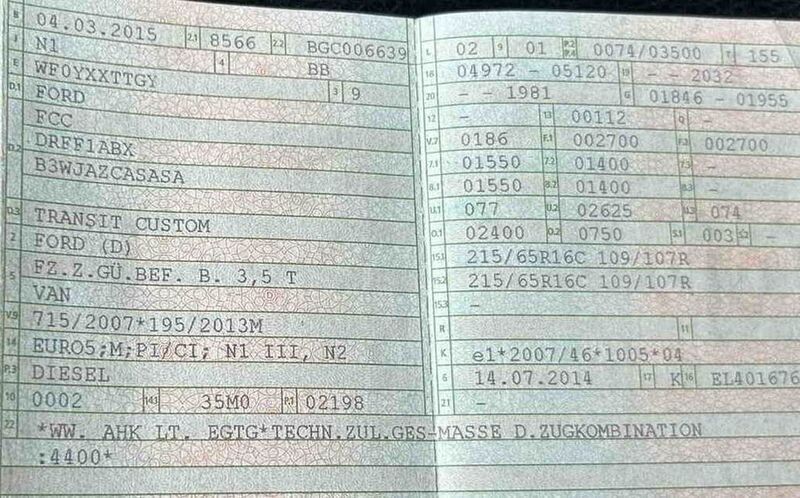 B 04.03.2015 2.1 8566 2.2 BGC006639
J N1 4 BB
E WF0YXXTTGY 3 9
D.1 FORD
FCC
D.2 DRFF1ABX
B3WJAZCASASA
D.3 TRANSIT CUSTOM
2 FORD (D)
5 FZ.Z.GÜ.BEF. B. 3,5 T
VAN
V.9 715/2007*195/2013M
14 EURO5;M;PI/CI; N1 III, N2
P.3 DIESEL
10 0002 14.1 35M0 P.1 02198
22 *WW. AHK LT. EGTG*TECHN.ZUL.GES-MASSE D.ZUGKOMBINATION
:4400*
L 02 9 01 P.2 P.4 0074/03500 T 155
18 04972 - 05120 19 - - 2032
20 - - 1981 G 01846 - 01955
12 - 13 00112 Q -
V.7 0186 F.1 002700 F.2 002700
7.1 01550 7.2 01400 7.3 -
8.1 01550 8.2 01400 8.3 -
U.1 077 U.2 02625 U.3 074
O.1 02400 O.2 0750 S.1 003 S.2 -
15.1 215/65R16C 109/107R
15.2 215/65R16C 109/107R
15.3 -
R 11
K e1*2007/46*1005*04
6 14.07.2014 17 K 16 EL401676
21 -